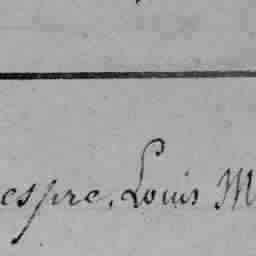 espre. Louis M